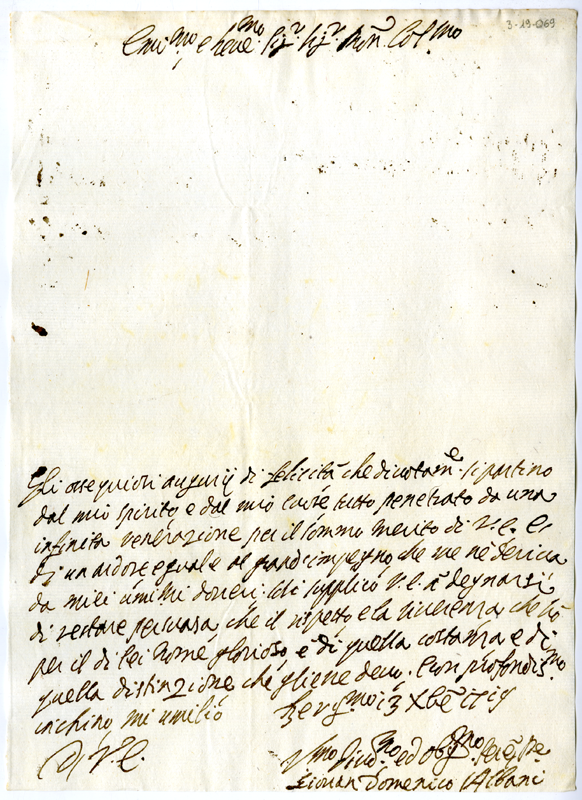 3-19-069
Emi.mo e Reve.mo Sig.r Sig.r Pron Col.mo
Gli ossequiosi augurij di felicità che divotam.e si partino
dal mio spirito, e dal mio cuore tutto penetrato da una
infinita venerazione per il sommo merito di V.E. e
di un ardore eguale al grand'impegno che me ne deriva
da miei umi.mi doveri. Supplico V.E. à degnarsi
di restare persuasa che il rispetto e la riverenza che hò
per il di Lei nome glorioso, e di quella costanza e di
quella distinzione che gliene devo. Con profondis.mo
inchino mi umilio Berg.mo 13 Xbre
D V.E.
Um.mo ed Obg.mo
Giovan Domenico Albani